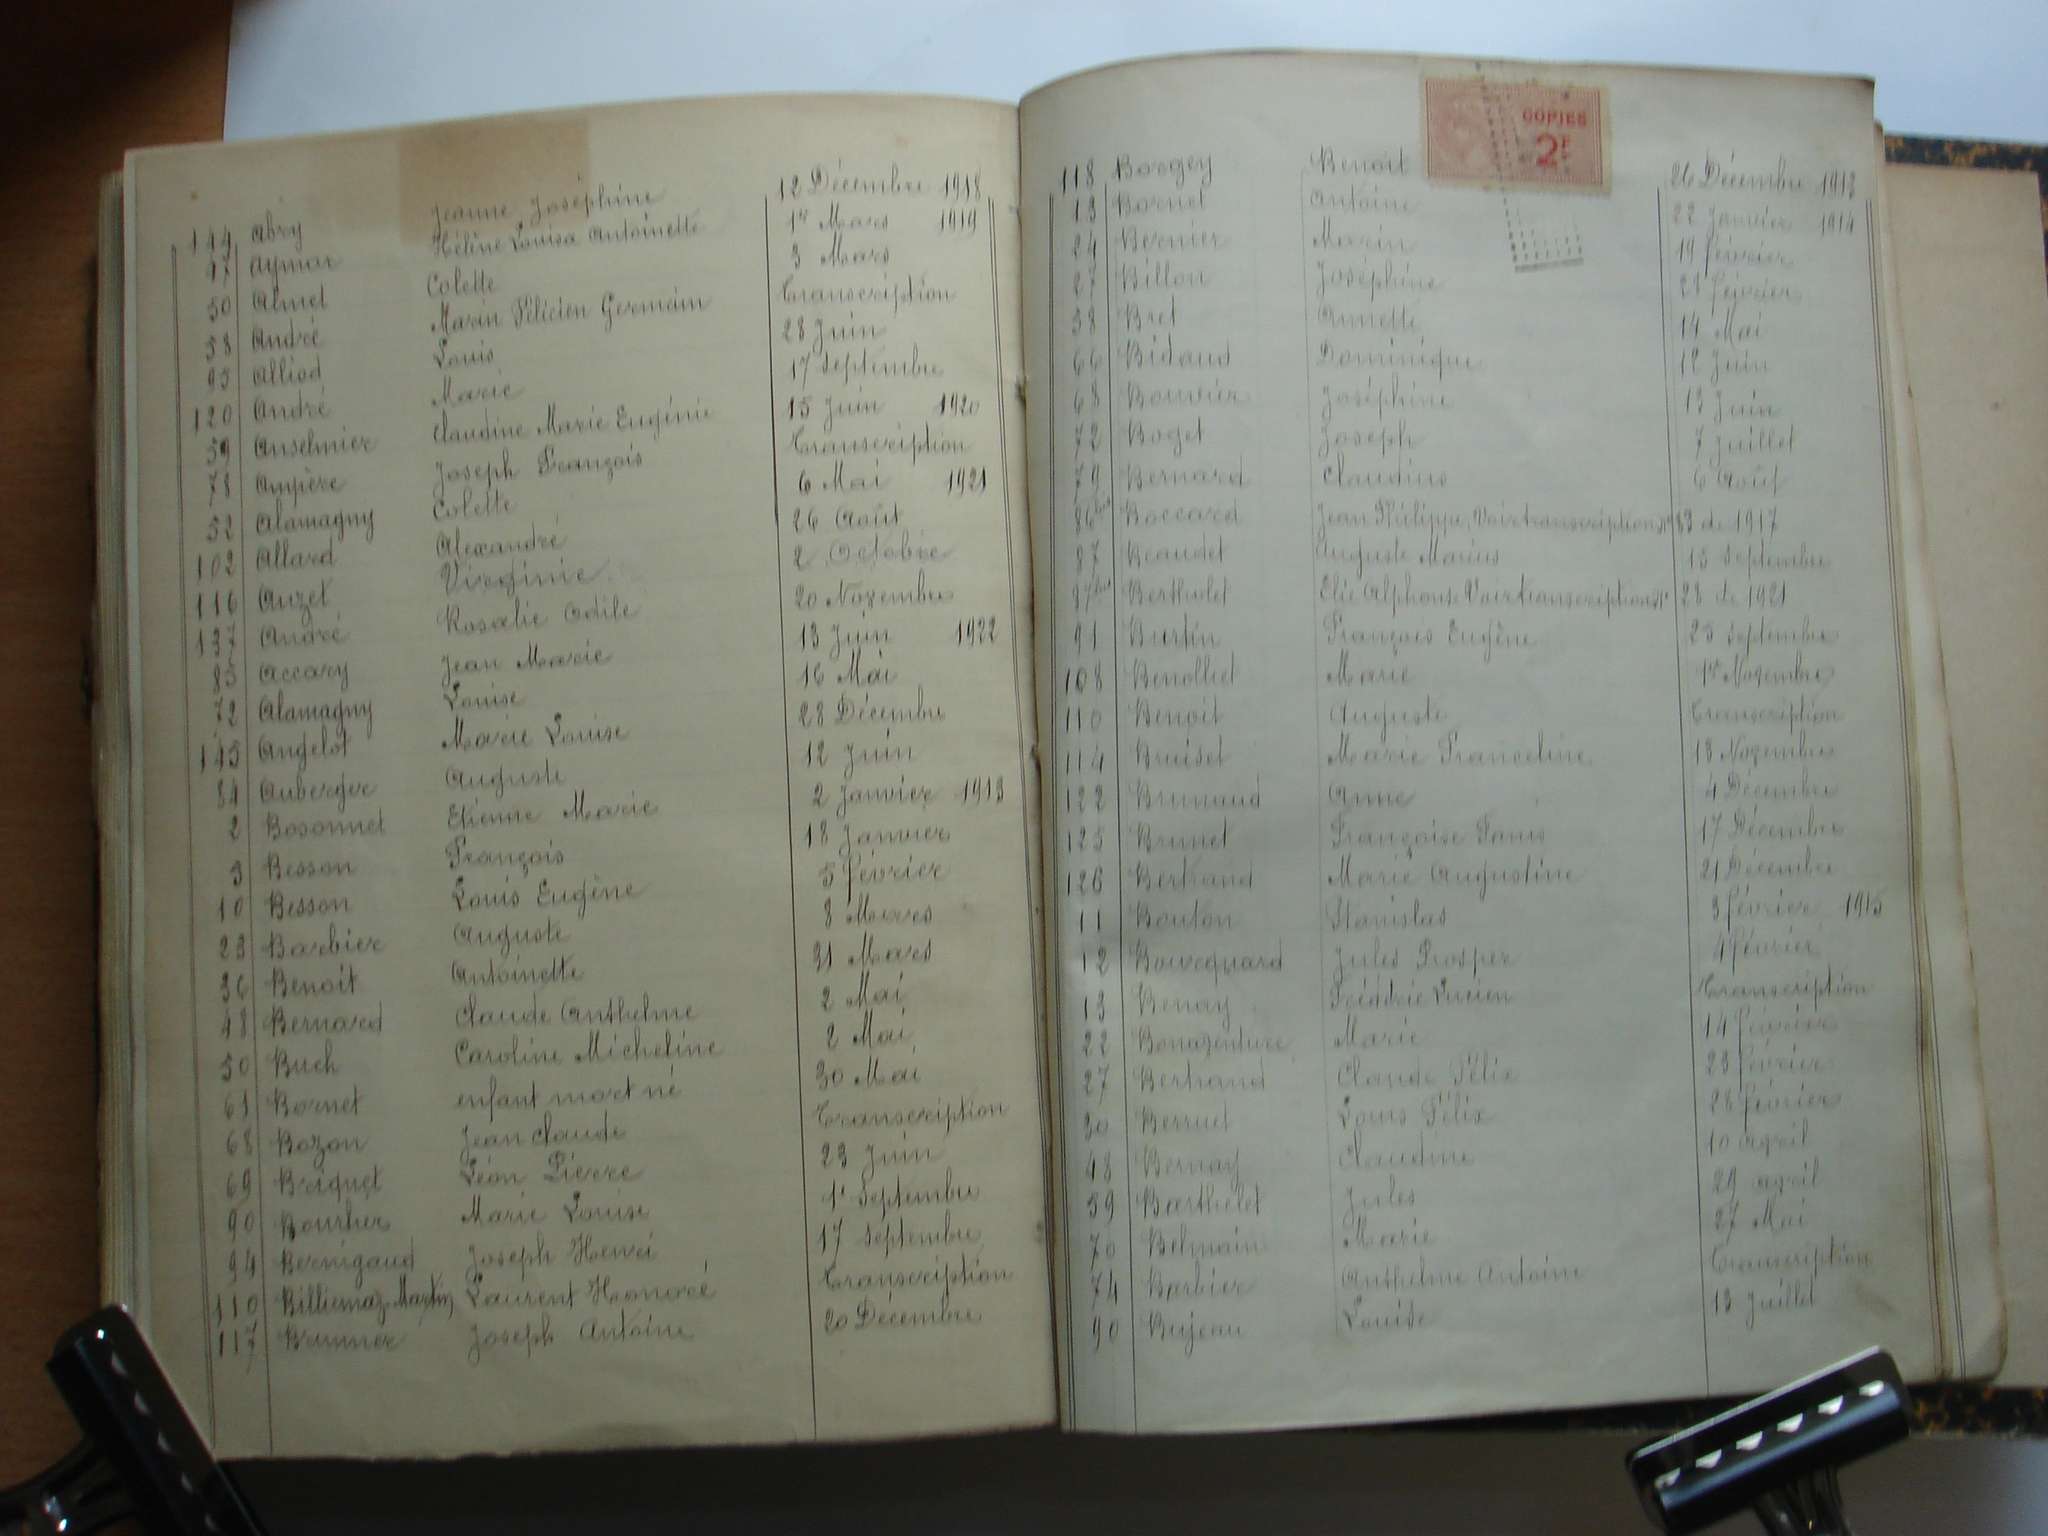 144 Abry Jeanne Joséphine 12 Décembre 1918
47 Aymar Hélène Louisa Antoinette 1er Mars 1919
50 Almet Colette 3 Mars
58 André Marin Félicien Germain Transcription
95 Alliod Louis 28 Juin
120 André Marie 17 Septembre
59 Anselmier Claudine Marie Eugénie 15 Juin 1920
78 Ampère Joseph François Transcription
52 Alamagny Colette 6 Mai 1921
102 Allard Alexandre 26 Août
116 Auzet Virginie 2 Octobre
137 André Rosalie Odile 20 Novembre
85 Accary Jean Marie 13 Juin 1922
72 Alamagny Louise 16 Mai
145 Angelot Marie Louise 28 Décembre
84 Auberger Auguste 12 Juin
2 Bosonnet Etienne Marie 2 Janvier 1913
3 Besson François 18 Janvier
10 Besson Louis Eugène 5 février
23 Barbier Auguste 8 Mars
36 Benoit Antoinette 31 Mars
48 Bernard Claude Anthelme 2 Mai
50 Buch Caroline Micheline 2 Mai
61 Bornet enfant mort né 30 Mai
68 Bozon Jean Claude Transcription
69 Briquet Léon Pierre 23 Juin
90 Bourher Marie Louise 1er Septembre
94 Bernigaud Joseph Henri 17 Septembre
110 Billiemaz Martin Laurent Honoré Transcription
117 Brunner Joseph Antoine 20 Décembre
COPIES
2F
118 Borgey Benoit 26 Décembre 1913
13 Bornet Antoine 22 Janvier 1914
24 Bernier Marin 19 février
27 Billon Joséphine 21 février
58 Bret Annette 14 Mai
66 Bidaud Dominique 12 Juin
68 Bouvier Joséphine 13 Juin
72 Boget Joseph 7 Juillet
79 Bernard Claudius 6 Août
86 bis Boccard Jean Philippe, Voir transcription N° 83 de 1917
87 Beaudet Auguste Marius 15 Septembre
87 bis Bertholet Elie Alphonse Voir transcription N° 28 de 1921
91 Burtin François Eugène 25 Septembre
108 Benolliet Marie 1er Novembre
110 Benoit Auguste Transcription
114 Bruiset Marie Franceline 13 Novembre
122 Brunaud Anne 4 Décembre
125 Brunet Françoise 17 Décembre
126 Bertrand Marie Augustine 21 Décembre
11 Bouton Stanislas 3 février 1915
12 Bourcquard Jules Prosper 4 février
13 Benay Frédéric Lucien Transcription
22 Bonaventure Marie 14 février
27 Bertrand Claude Félix 23 février
30 Berruet Louis Félix 28 février
48 Bernay Claudine 10 avril
59 Barthelet Jules 29 avril
70 Belmain Marie 27 Mai
74 Barbier Anthelme Antoine Transcription
90 Bujeau Louise 13 Juillet